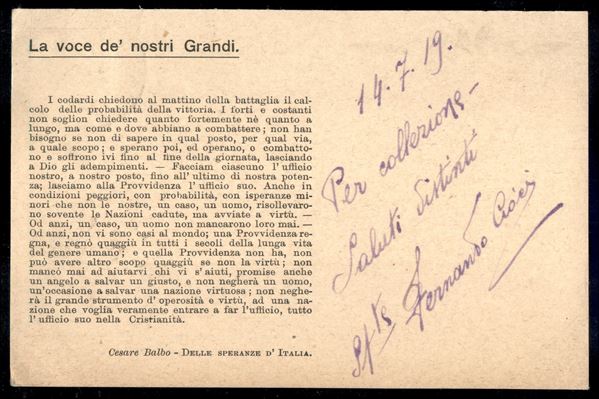 La voce de' nostri Grandi.
I codardi chiedono al mattino della battaglia il cal-
colo delle probabilità della vittoria. I forti e costanti
non soglion chiedere quanto fortemente nè quanto a
lungo, ma come e dove abbiano a combattere; non han
bisogno se non di sapere in qual posto, per qual via,
a quale scopo; e sperano poi, ed operano, o combatto-
no e soffrono ivi fino al fine della giornata, lasciando
a Dio gli adempimenti. — Facciam ciascuno l'ufficio
nostro, a nostro posto, fino all'ultimo di nostra poten-
za; lasciamo alla Provvidenza l'ufficio suo. Anche in
condizioni peggiori, con probabilità, con isperanze mi-
nori che non le nostre, un caso, un uomo, risollevaro-
no sovente le Nazioni cadute, ma avviate a virtù. —
Od anzi, un caso, un uomo non mancarono loro mai. —
Od anzi, non vi sono casi al mondo; una Provvidenza re-
gna, e regnò quaggiù in tutti i secoli della lunga vita
del genere umano; e quella Provvidenza non ha, non
può avere altro scopo quaggiù se non la virtù; non
mancò mai ad aiutarvi chi vi s'aiuti, promise anche
un angelo a salvar un giusto, e non negherà un uomo,
un'occasione a salvar una nazione virtuosa; non neghe-
rà il grande strumento d'operosità e virtù, ad una na-
zione che voglia veramente entrare a far l'ufficio, tutto
l'ufficio suo nella Cristianità.
Cesare Balbo - DELLE SPERANZE D' ITALIA.
14.7.19.
Per collezione -
Saluti distinti
Fernando